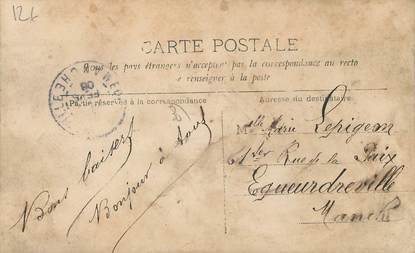 12f
CARTE POSTALE
Tous les pays étrangers n'acceptent pas la correspondance au recto
se renseigner à la poste
Partie réservée à la correspondance
Adresse du destinataire
Bons baisers
Bonjour à tous
Melle Marie Lepigeon
1 ter Rue de la Paix
Equeurdreville
Manche